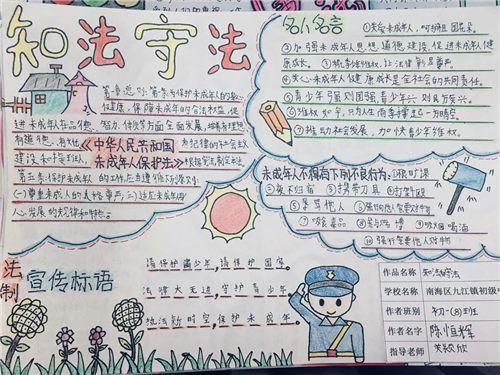 知法守法
第一章总则:第一条为保护未成年人的身心
健康,保障未成年人的合法权益,促
进未成年人在品德、智力、体质等方面全面发展,培养有理想
有道德、有文化
《中华人民共和国
未成年人保护法》
有纪律的社会主义
建设
接班人,
根据宪法制定本法
的工作应当遵循下列原则
(一)尊重未成年人的人格尊严;(二)适应未成年身
心发展的规律和特点。
名人名言
①关爱未成年人,呵护祖国花朵。
②加强未成年人思想道德建设,促进未成年人健
康成长。
③
让法律彰显尊严。
④关心未成年人健康成长是全社会的共同责任。
⑤青少年强则国强,青少年兴则国兴。
⑥
⑦推动社会发展,加快青少年维权。
未成年人不得有下列不良行为:
①旷课
②夜不归宿
③携带刀具
④打架
⑤辱骂他人
⑥强行向他人索要财物
⑦吸食毒品
⑧参与赌博
⑨吸烟喝酒
⑩强行索要他人财物
法制
宣传标语
请保护青少年,请保护国家。
法律大无边,守护青少年
执法新时空,保护未成年
作品名称
知法守法
学校名称
南海区九江镇初级中
作者班别
初一(8)班
作者名字
陈恒辉
指导老师
关颖欣